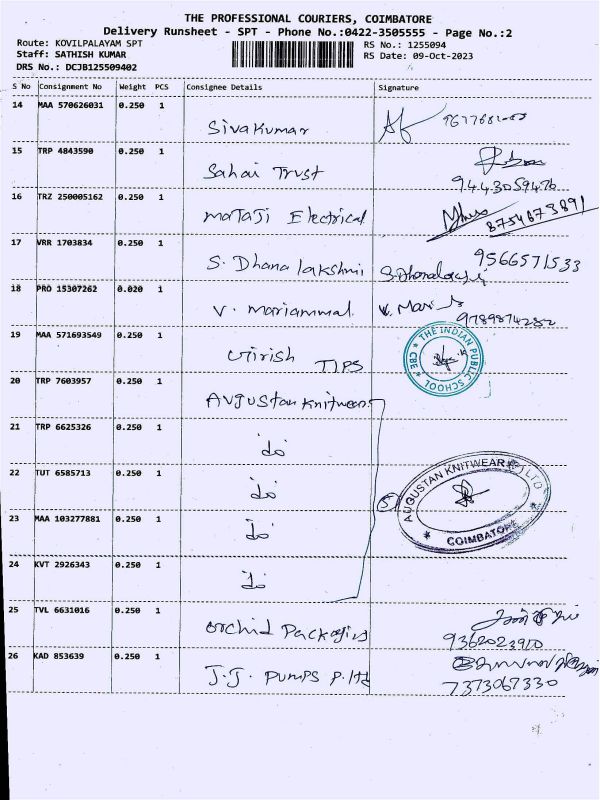 THE PROFESSIONAL COURIERS, COIMBATORE
Delivery Runsheet - SPT - Phone No.:0422-3505555 - Page No.:2
Route: KOVILPALAYAM SPT RS No.: 1255094
Staff: SATHISH KUMAR RS Date: 09-Oct-2023
DRS No.: DCJB125509402
S No Consignment No Weight PCS Consignee Details Signature
14 MAA 570626031 0.250 1 Sivakumar
15 TRP 4843590 0.250 1 Sahai Trust 9443059476
16 TRZ 250005162 0.250 1 Mataji Electrical 8754873891
17 VRR 1703834 0.250 1 S. Dhana lakshmi 9566571533
18 PRO 15307262 0.020 1 V. Mariammal 9789874252
19 MAA 571693549 0.250 1 Girish TIPS THE INDIAN PUBLIC SCHOOL * CBE *
20 TRP 7603957 0.250 1 Augustan Knitwear
21 TRP 6625326 0.250 1 do
22 TUT 6585713 0.250 1 do
23 MAA 103277881 0.250 1 do (5) AUGUSTAN KNITWEAR LTD * COIMBATORE *
24 KVT 2926343 0.250 1 do
25 TVL 6631016 0.250 1 Orchid Packagies 9362023910
26 KAD 853639 0.250 1 J.J. Pumps P.ltd 7373067330